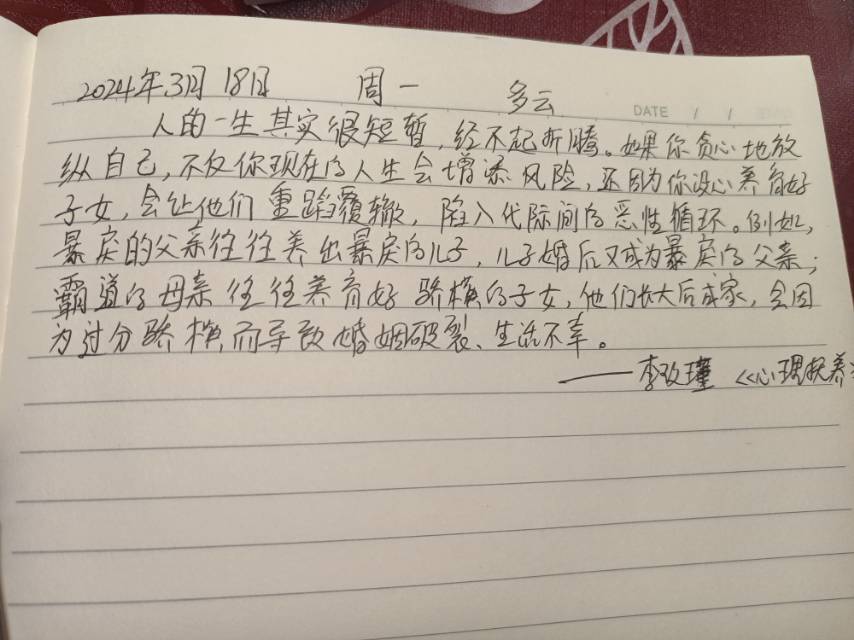 2024年3月18日 周一 多云
DATE / /
人的一生其实很短暂,经不起折腾。如果你贪心地放
纵自己,不仅你现在的人生会增添风险,还因为你没心养育好
子女,会让他们重蹈覆辙,陷入代际间的恶性循环。例如,
暴戾的父亲往往养出暴戾的儿子,儿子婚后又成为暴戾的父亲;
霸道的母亲往往养育好骄横的子女,他们长大后成家,会因
为过分骄横而导致婚姻破裂、生活不幸。
——李玫瑾《心理抚养》